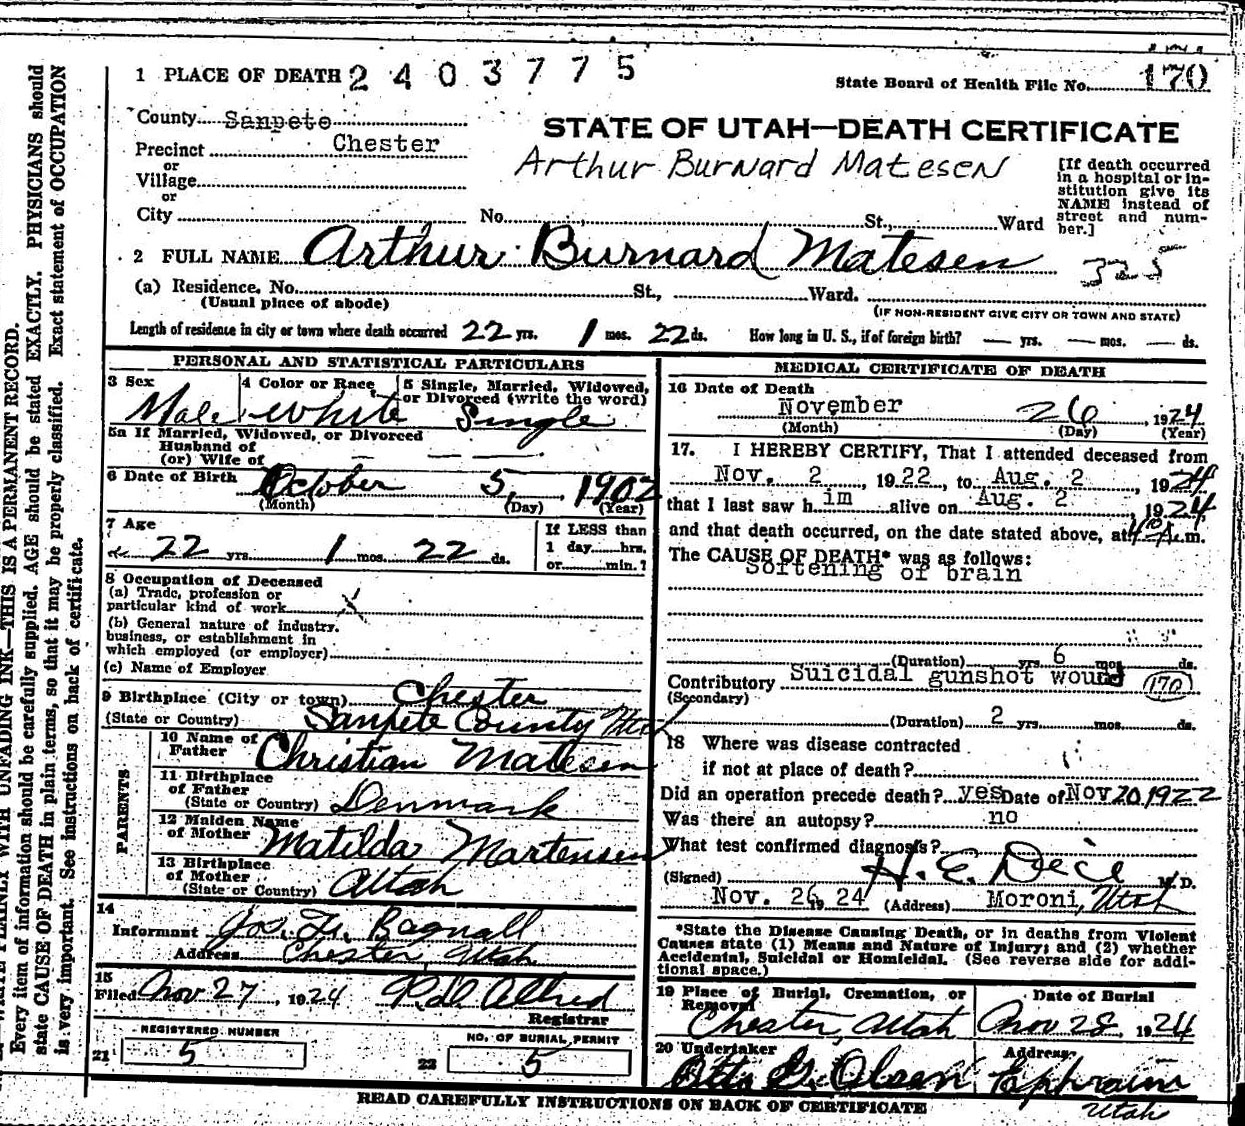 1 PLACE OF DEATH 2403775
State Board of Health File No. 170
County Sanpete
STATE OF UTAH—DEATH CERTIFICATE
Precinct Chester
Arthur Burnard Matesen
or
Village
or
City No. St., Ward
[If death occurred
in a hospital or in-
stitution give its
NAME instead of
street and num-
ber.]
2 FULL NAME Arthur Burnard Matesen 325
(a) Residence. No. St., Ward.
(Usual place of abode) (IF NON-RESIDENT GIVE CITY OR TOWN AND STATE)
Length of residence in city or town where death occurred 22 yrs. 1 mos. 22 ds. How long in U. S., if of foreign birth? — yrs. — mos. — ds.
PERSONAL AND STATISTICAL PARTICULARS
3 Sex 4 Color or Race 5 Single, Married, Widowed,
or Divorced (write the word)
Male White Single
5a If Married, Widowed, or Divorced
Husband of
(or) Wife of — — —
6 Date of Birth October 5, 1902
(Month) (Day) (Year)
7 Age
22 yrs. 1 mos. 22 ds.
If LESS than
1 day......hrs.
or......min.?
8 Occupation of Deceased
(a) Trade, profession or
particular kind of work X
(b) General nature of industry,
business, or establishment in
which employed (or employer)
(c) Name of Employer
9 Birthplace (City or town) Chester
(State or Country) Sanpete County Utah
PARENTS
10 Name of
Father Christian Matesen
11 Birthplace
of Father
(State or Country) Denmark
12 Maiden Name
of Mother Matilda Martensen
13 Birthplace
of Mother
(State or Country) Utah
14
Informant Jos. Fr. Bagnall
Address Chester, Utah
15
Filed Nov 27, 1924 Allred
Registrar
REGISTERED NUMBER
21 5
NO. OF BURIAL PERMIT
22 5
MEDICAL CERTIFICATE OF DEATH
16 Date of Death
November 26 1924
(Month) (Day) (Year)
17. I HEREBY CERTIFY, That I attended deceased from
Nov. 2, 1922, to Aug. 2, 1924
that I last saw him alive on Aug. 2, 1924,
and that death occurred, on the date stated above, at m.
The CAUSE OF DEATH* was as follows:
Softening of brain
(Duration) yrs. 6 mos. ds.
Contributory Suicidal gunshot wound 170
(Secondary)
(Duration) 2 yrs. mos. ds.
18 Where was disease contracted
if not at place of death?
Did an operation precede death? yes Date of Nov 20, 1922
Was there an autopsy? no
What test confirmed diagnosis?
(Signed) H. E. Dice M. D.
Nov. 26 19 24 (Address) Moroni, Utah
*State the Disease Causing Death, or in deaths from Violent
Causes state (1) Means and Nature of Injury; and (2) whether
Accidental, Suicidal or Homicidal. (See reverse side for addi-
tional space.)
19 Place of Burial, Cremation, or
Removal
Date of Burial
Chester, Utah Nov 28, 1924
20 Undertaker Address
Otto G. Olsen Ephraim
Utah
READ CAREFULLY INSTRUCTIONS ON BACK OF CERTIFICATE
WRITE PLAINLY WITH UNFADING INK—THIS IS A PERMANENT RECORD.
Every item of information should be carefully supplied. AGE should be stated EXACTLY. PHYSICIANS should
state CAUSE OF DEATH in plain terms, so that it may be properly classified. Exact statement of OCCUPATION
is very important. See instructions on back of certificate.